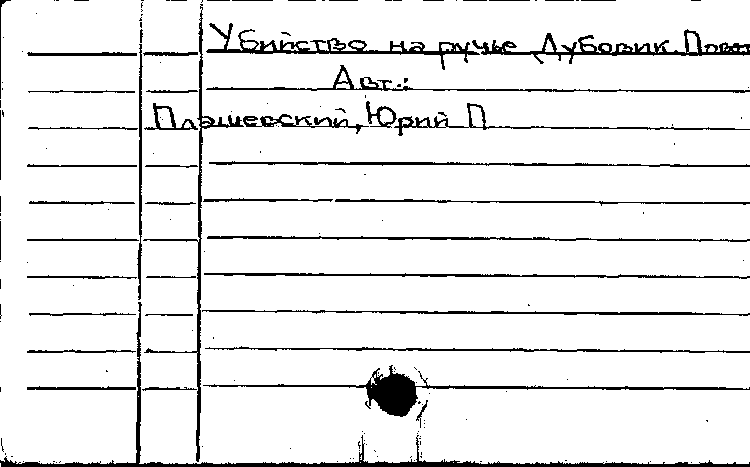 Убийство на ручье Дубовик. Повес
Авт.:
Плашевский, Юрий П